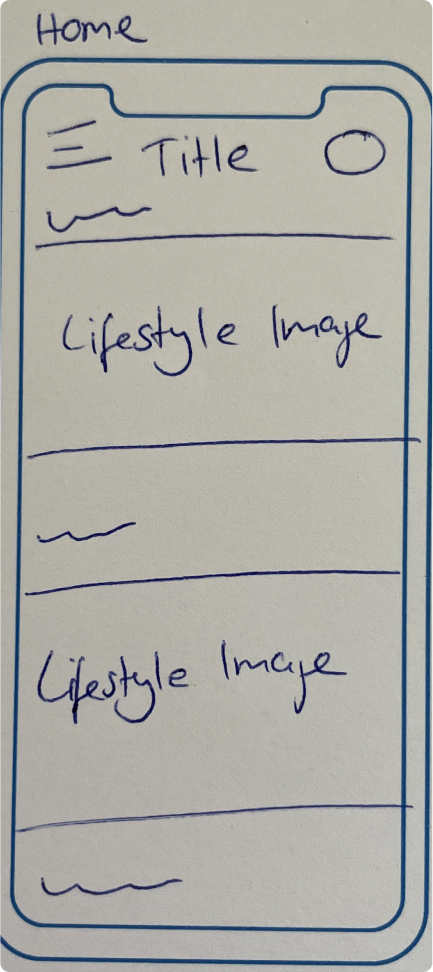 Home
Title
Lifestyle Image
Lifestyle Image